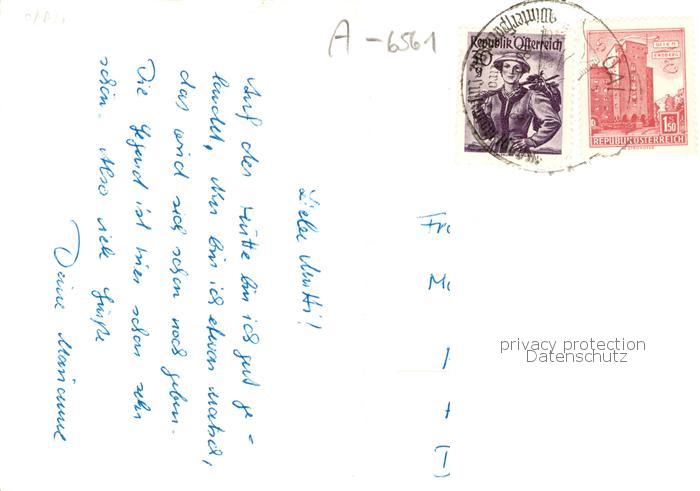 A-6561
Republik Österreich
WIEN
ERDBERG
1.50
REPUBLIK ÖSTERREICH
Liebe Mutti!
Auf der Hütte bin ich gut ge-
landet, nur bin ich etwas matsch,
das wird sich schon noch geben.
Die Gegend ist hier schon sehr
schön. Also viele Grüße
Deine Marianne
Fr
M
privacy protection
Datenschutz